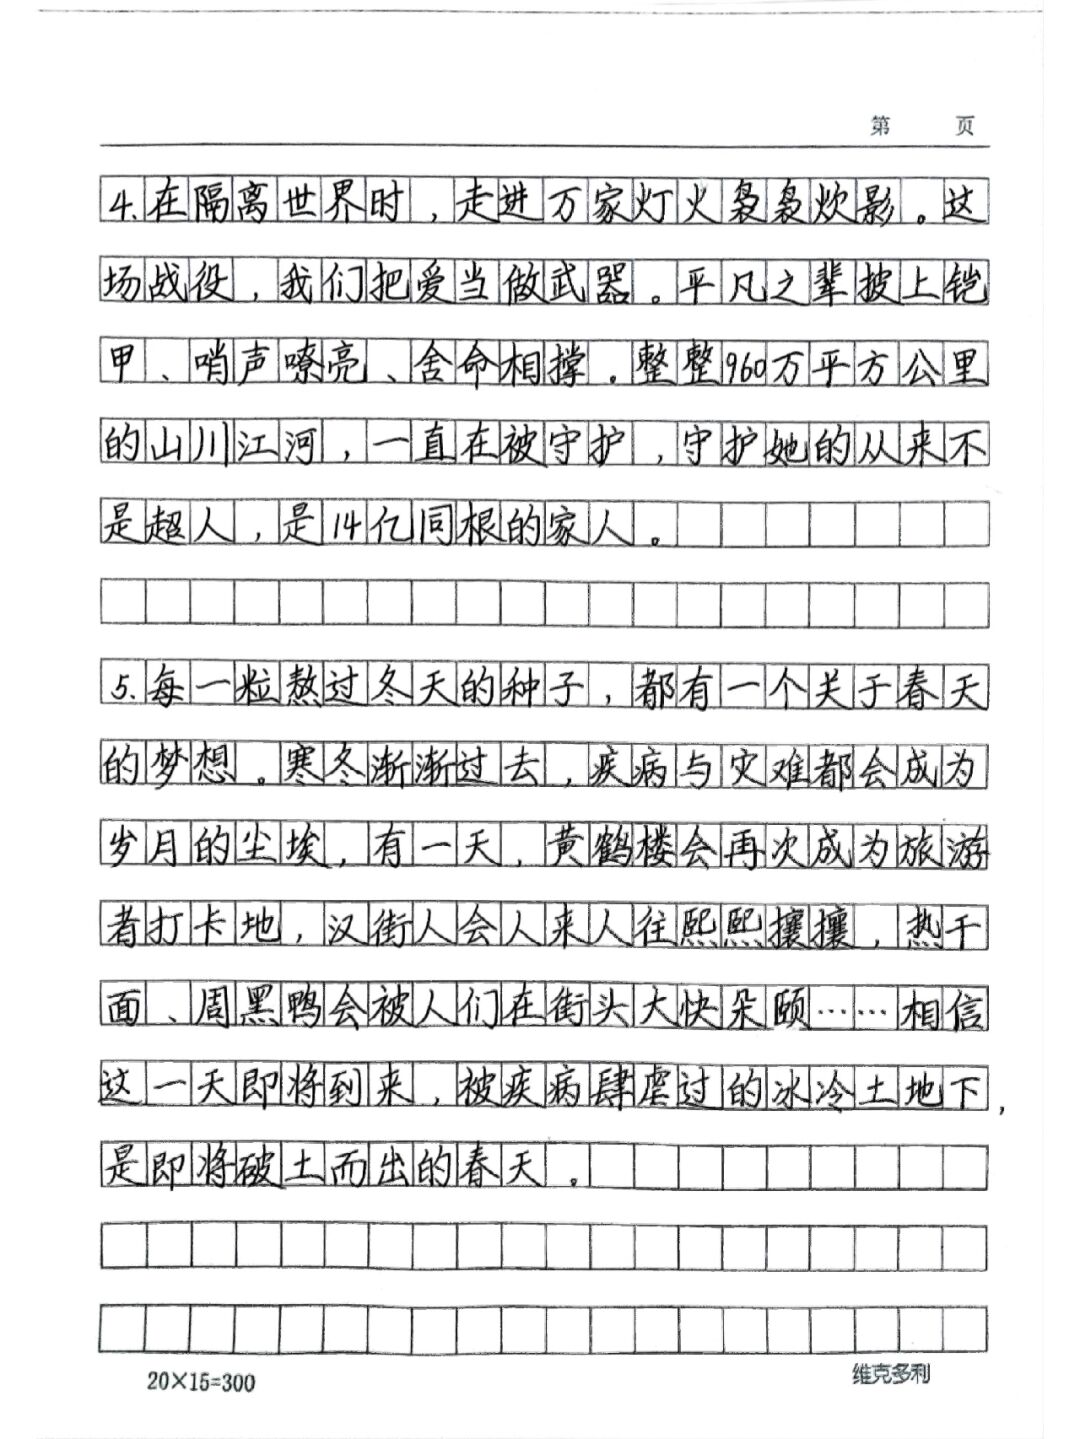 第 页
4.在隔离世界时，走进万家灯火袅袅炊影。这
场战役，我们把爱当做武器。平凡之辈披上铠
甲、哨声嘹亮、舍命相撑。整整960万平方公里
的山川江河，一直在被守护，守护她的从来不
是超人，是14亿同根的家人。
5.每一粒熬过冬天的种子，都有一个关于春天
的梦想。寒冬渐渐过去，疾病与灾难都会成为
岁月的尘埃，有一天，黄鹤楼会再次成为旅游
者打卡地，汉街人会人来人往熙熙攘攘，热干
面、周黑鸭会被人们在街头大快朵颐……相信
这一天即将到来，被疾病肆虐过的冰冷土地下，
是即将破土而出的春天。
20×15=300
维克多利